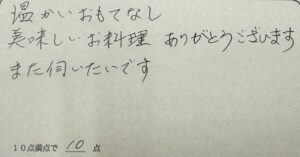 温かいおもてなし
美味しいお料理 ありがとうございます
また伺いたいです
10点満点で 10 点